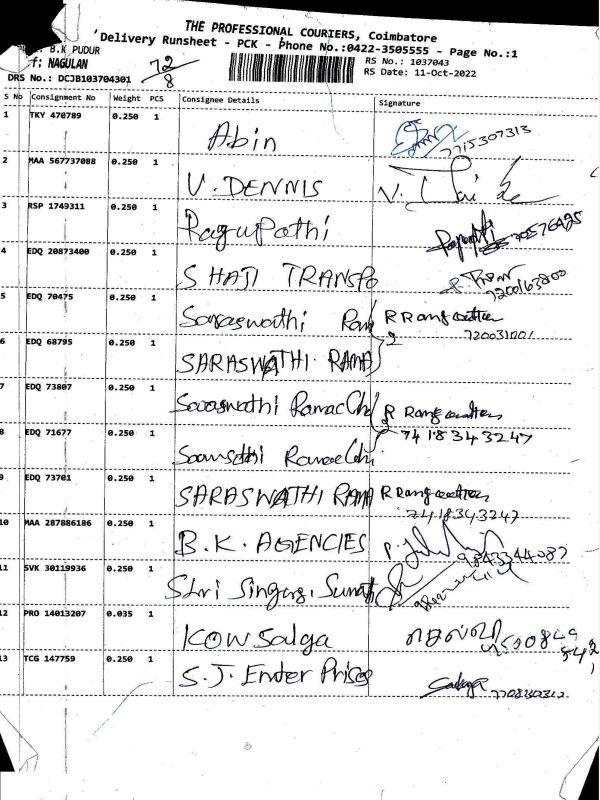 THE PROFESSIONAL COURIERS, Coimbatore
Delivery Runsheet - PCK - Phone No.:0422-3505555 - Page No.:1
B.K_PUDUR
f: NAGULAN
72/8
RS No.: 1037043
DRS No.: DCJB103704301
RS Date: 11-Oct-2022
S No Consignment No Weight PCS Consignee Details Signature
1 TKY 470789 0.250 1 Abin 7715307313
2 MAA 567737088 0.250 1 V. DENNIS
3 RSP 1749311 0.250 1 Ragupathi
4 EDQ 20873400 0.250 1 SHAJI TRANSPO 7200163800
5 EDQ 70475 0.250 1 Saraswathi Ram
720031001
6 EDQ 68795 0.250 1 SARASWATHI RAMA 2
7 EDQ 73807 0.250 1 Saraswathi Ramac
8 EDQ 71677 0.250 1 7418343247
9 EDQ 73701 0.250 1 SARASWATHI RAMA
7418343247
10 MAA 287886186 0.250 1 B.K. AGENCIES 9843344087
11 SVK 30119936 0.250 1 Shri Singers,
12 PRO 14013207 0.035 1 Kowsalya
13 TCG 147759 0.250 1 S.J. Enter Prises